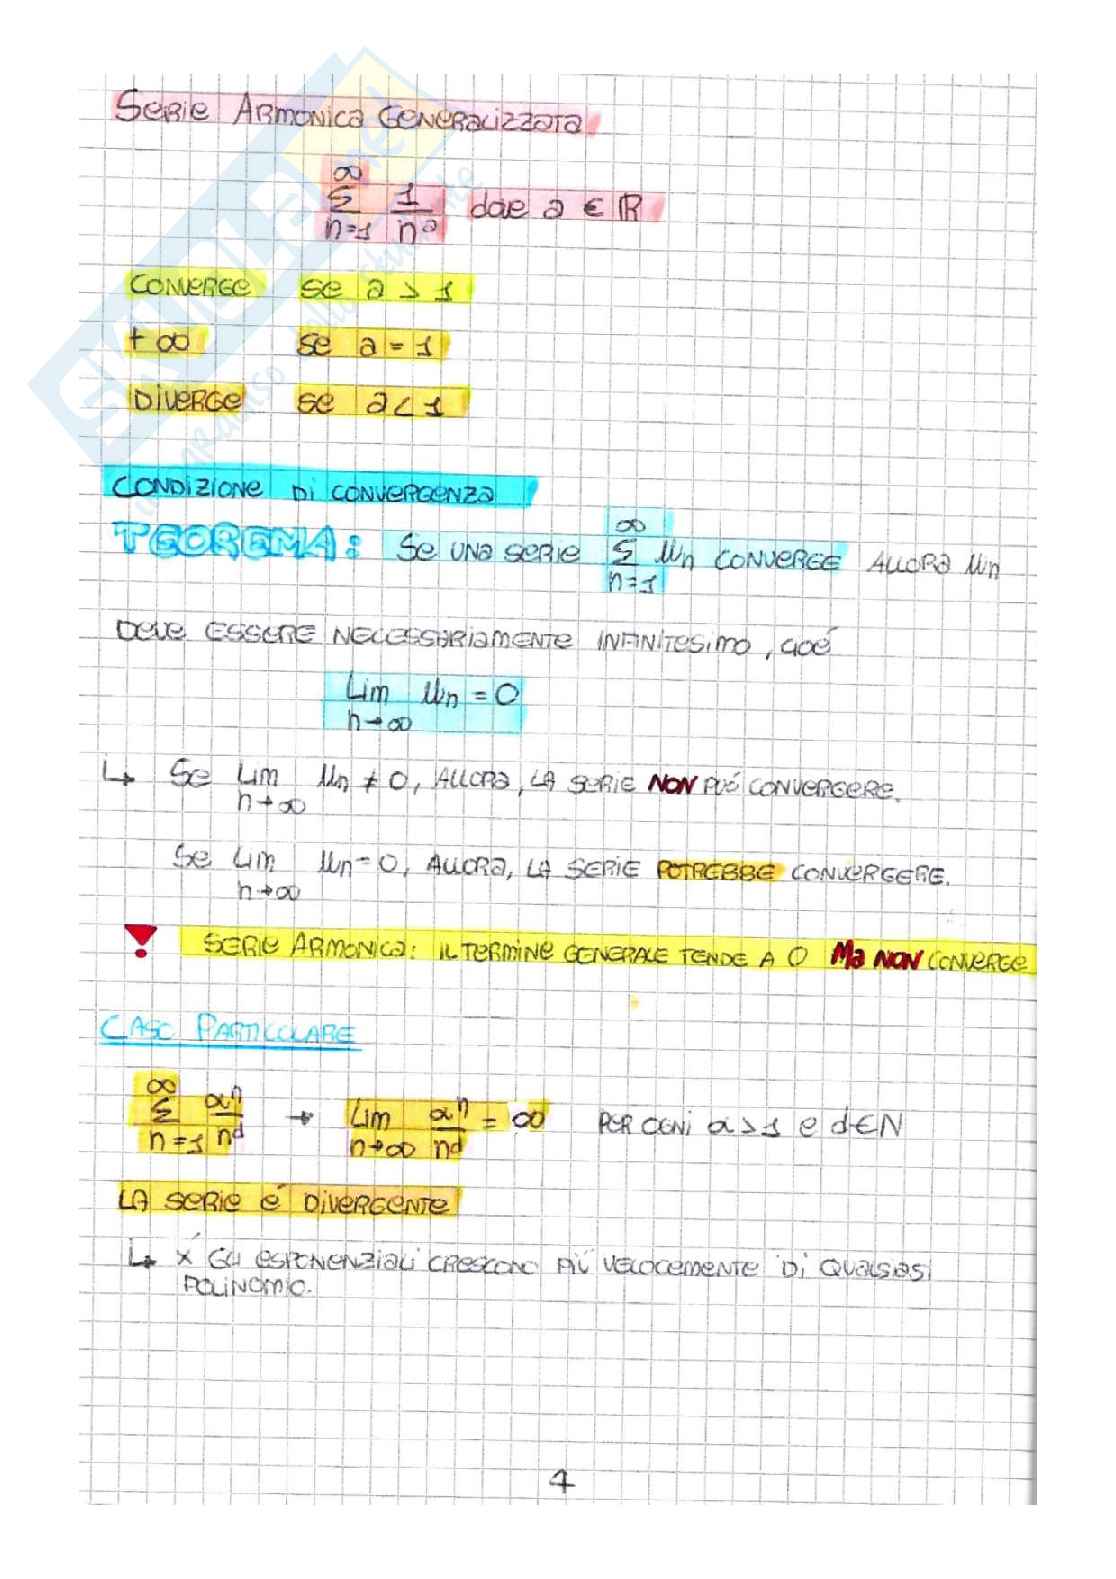 Serie Armonica Generalizzata
∞
Σ 1/n^a dove a ∈ ℝ
n=1
Converge se a > 1
+∞ se a = 1
Diverge se a < 1
Condizione di convergenza
TEOREMA: Se una serie ∞ Σ n=1 un converge allora un
deve essere necessariamente infinitesimo, cioé
Lim un = 0
n→∞
↳ Se Lim un ≠ 0, allora, la serie NON puó convergere.
n→∞
Se Lim un = 0, allora, la serie POTREBBE convergere.
n→∞
! Serie Armonica: il termine generale tende a 0 Ma NON converge
Caso Particolare
∞ Σ n=1 α^n/n^d → Lim n→∞ α^n/n^d = ∞ per ogni α > 1 e d ∈ N
La serie é divergente
↳ x' gli esponenziali crescono piú velocemente di qualsiasi
polinomio.
4